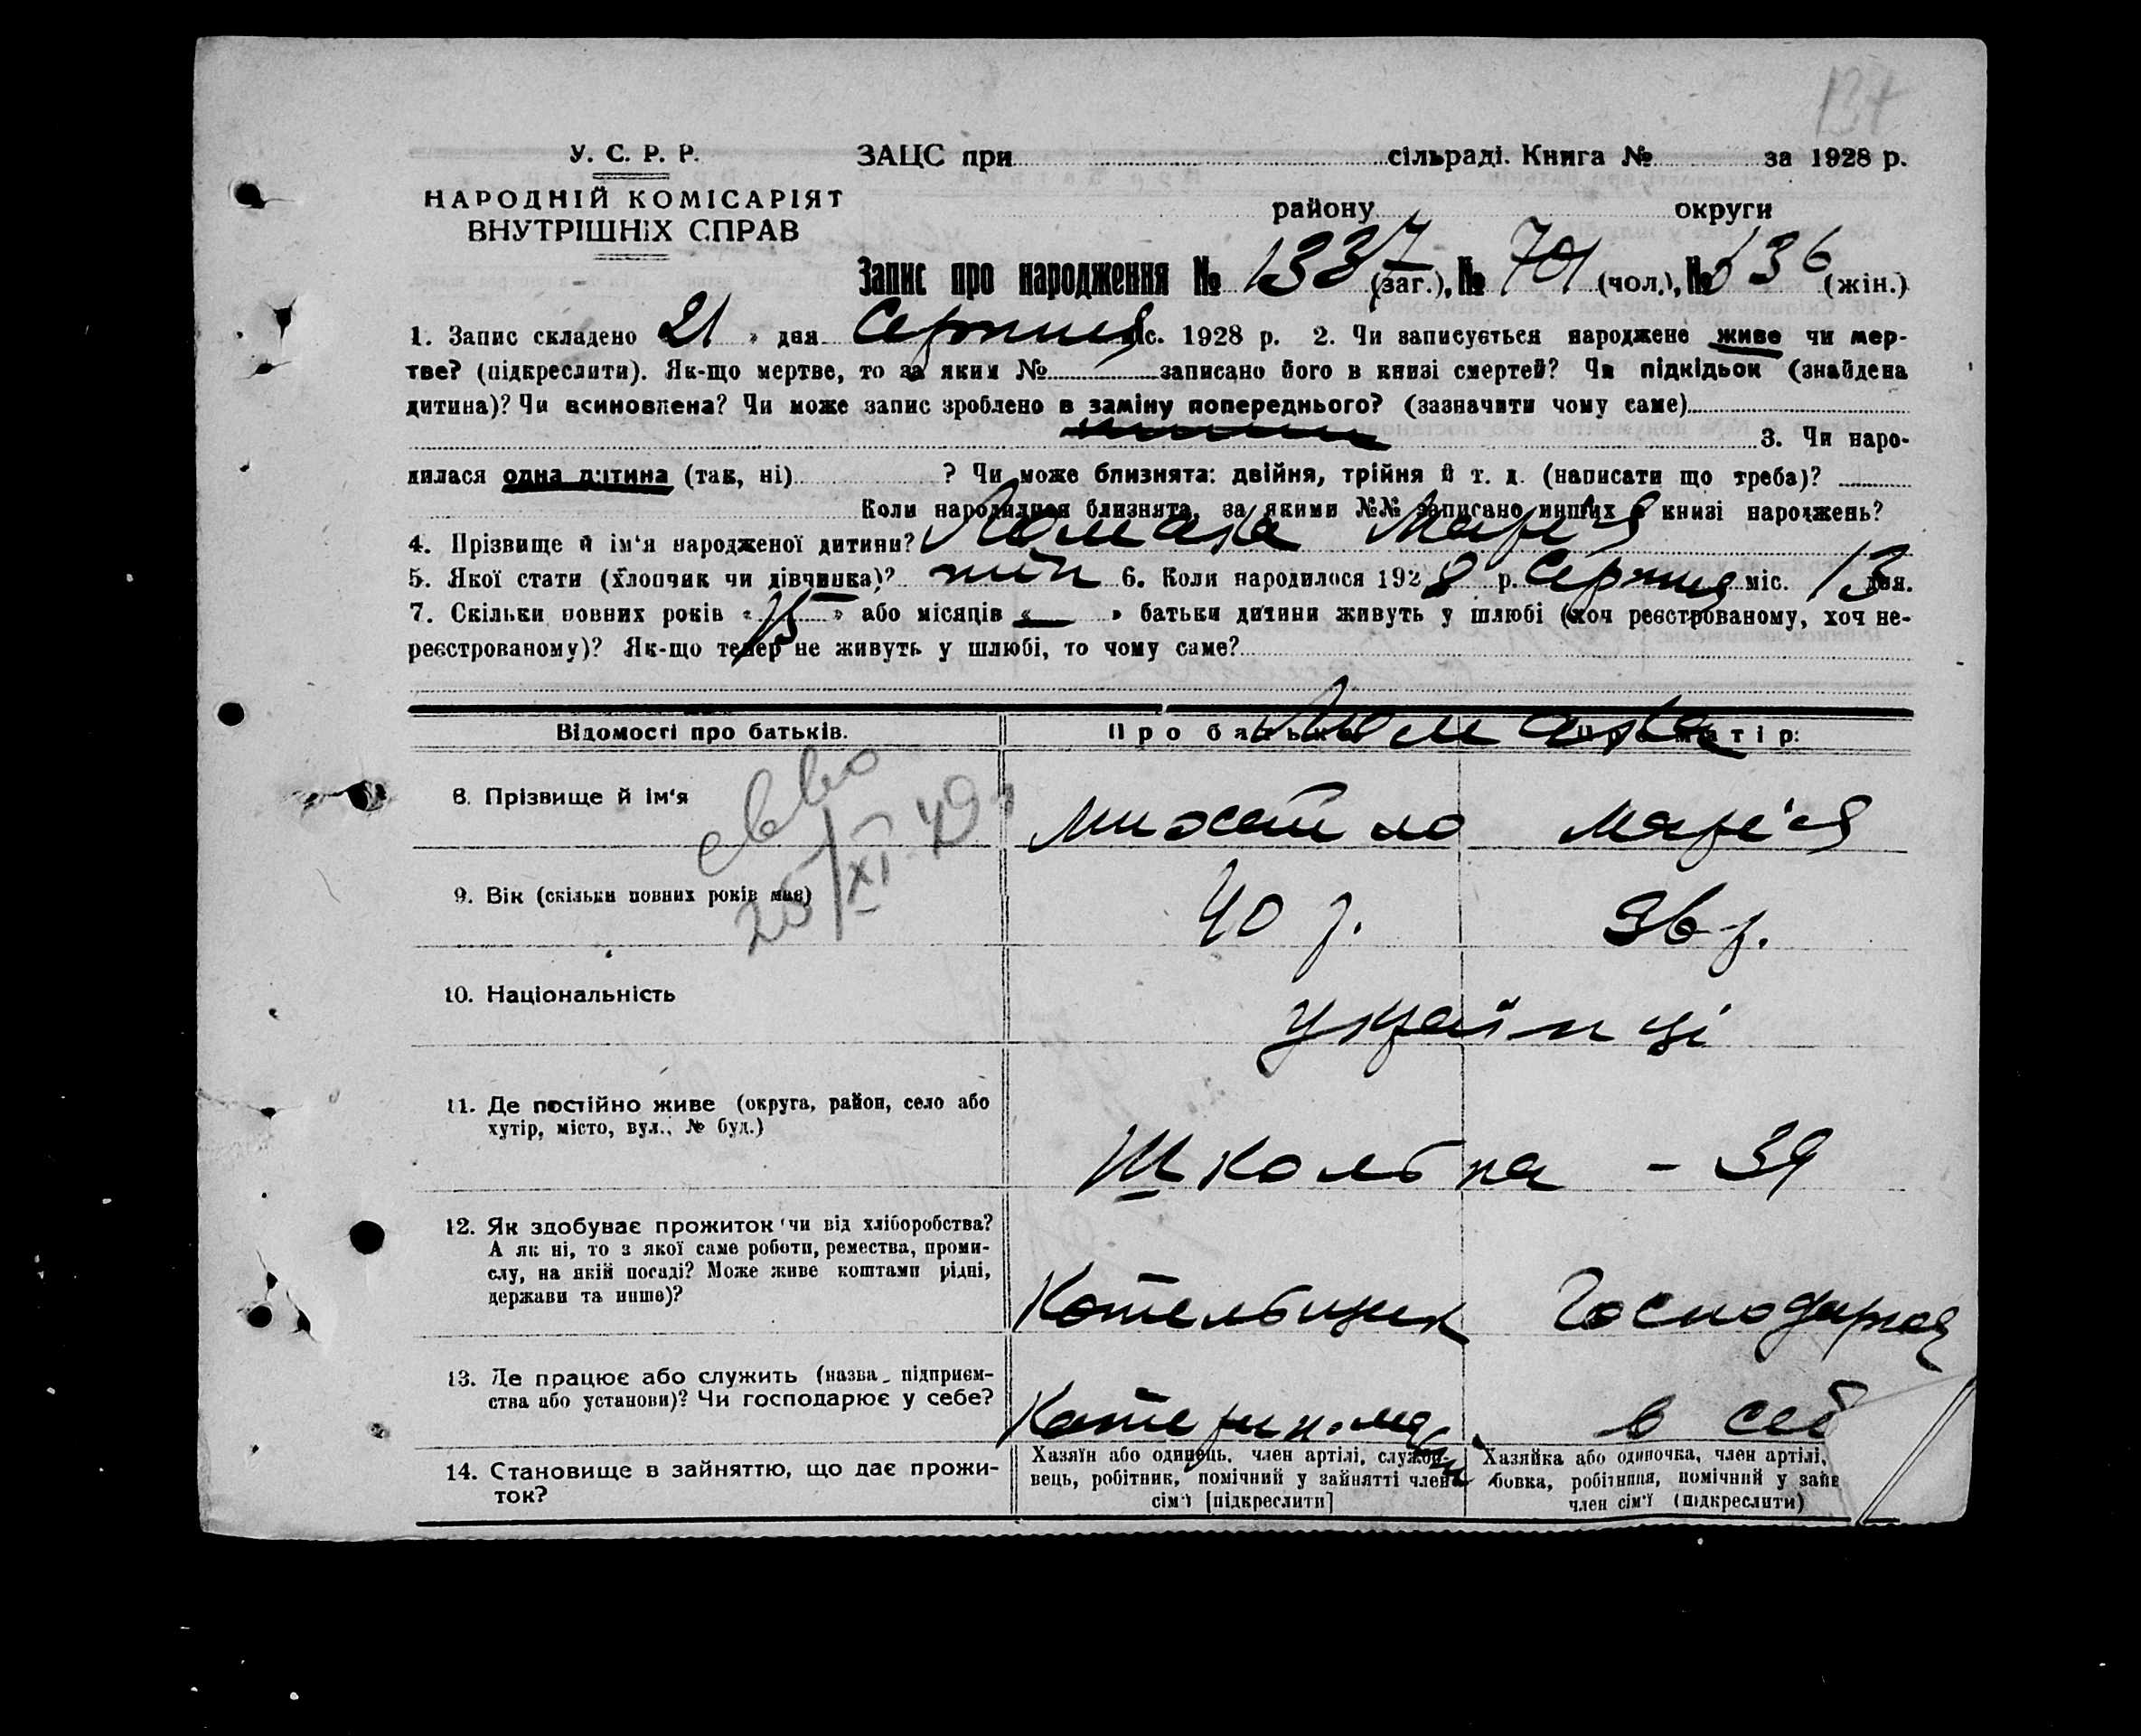 137
У. С. Р. Р.
НАРОДНІЙ КОМІСАРІЯТ
ВНУТРІШНІХ СПРАВ
ЗАЦС при сільраді. Книга № за 1928 р.
району округи
Запис про народження № 1337 (заг.), № 701 (чол.), № 636 (жін.)
1. Запис складено 21 » дня Серпня міс. 1928 р. 2. Чи записується народжене живе чи мер-
тве? (підкреслити). Як-що мертве, то за яким № записано його в книзі смертей? Чи підкідьок (знайдена
дитина)? Чи всиновлена? Чи може запис зроблено в заміну попереднього? (зазначити чому саме)
3. Чи наро-
дилася одна дитина (так, ні) ? Чи може близнята: двійня, трійня й т. д. (написати що треба)?
Коли народилися близнята, за якими №№ записано инших в книзі народжень?
4. Прізвище й ім'я народженої дитини? Ломака Марія
5. Якої стати (хлопчик чи дівчинка)? жін 6. Коли народилося 1928 р. Серпня міс. 13 дня.
7. Скільки повних років « 15 » або місяців « — » батьки дитини живуть у шлюбі (хоч реєстрованому, хоч не-
реєстрованому)? Як-що тепер не живуть у шлюбі, то чому саме?
Відомості про батьків. Про батька: Про матір:
Ломака
8. Прізвище й ім'я Михайло Марія
25/XI-49
9. Вік (скільки повних років має) 40 р. 36 р.
10. Національність українці
11. Де постійно живе (округа, район, село або
хутір, місто, вул., № буд.)
Школьна - 39
12. Як здобуває прожиток чи від хліборобства?
А як ні, то з якої саме роботи, ремества, проми-
слу, на якій посаді? Може живе коштами рідні,
держави та инше)?
Котельщик Господарка
13. Де працює або служить (назва підприєм-
ства або установи)? Чи господарює у себе?
Катерин. в себ
14. Становище в зайняттю, що дає прожи-
ток?
Хазяїн або одинець, член артілі, службо-
вець, робітник, помічний у зайнятті член
сім'ї [підкреслити]
Хазяйка або одиночка, член артілі,
бовка, робітниця, помічний у зайн
член сім'ї (підкреслити)